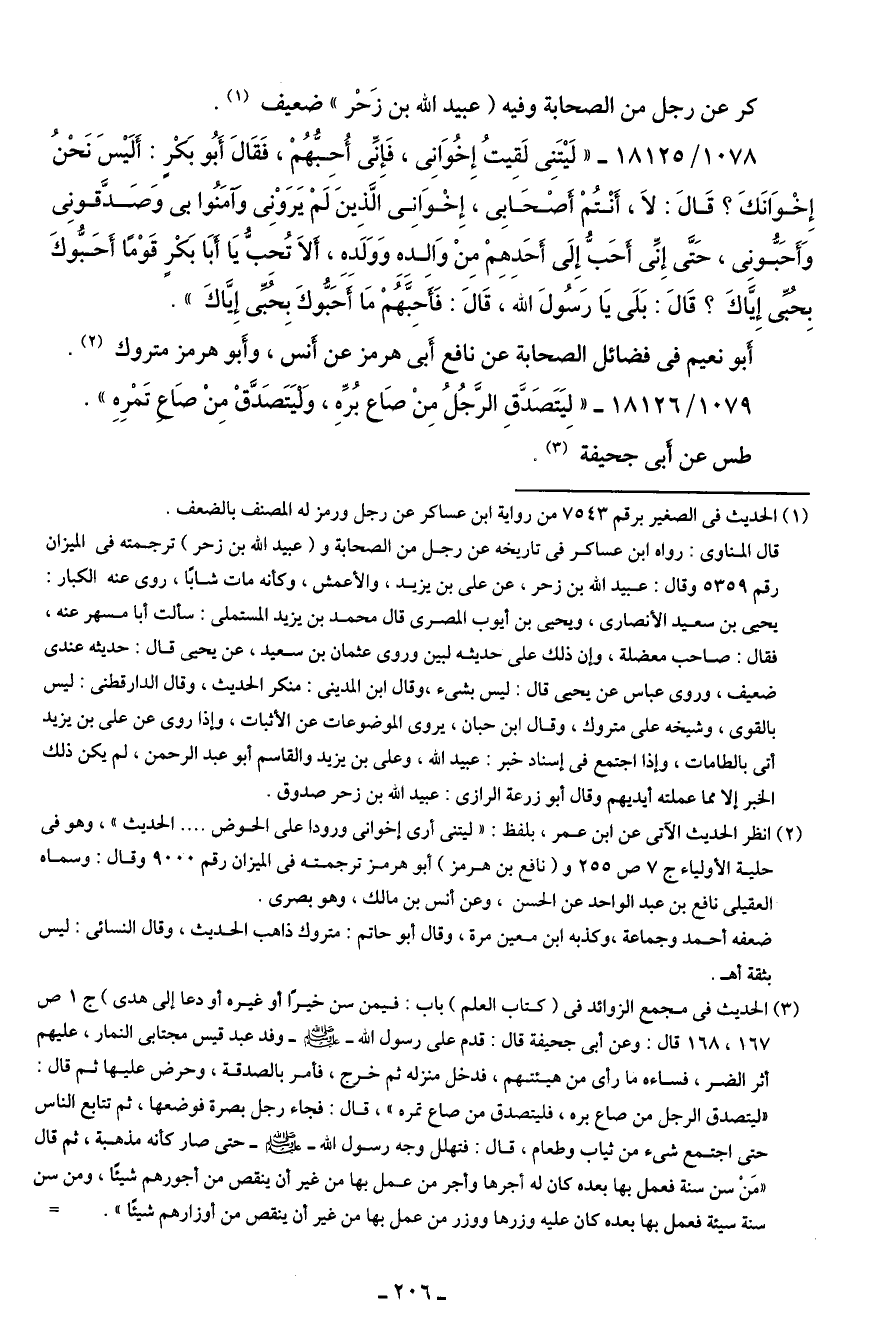 كر عن رجل من الصحابة وفيه ( عبيد الله بن زَحْر » ضعيف (١) .
١٨١٢٥/١٠٧٨ ـ « لَيْتَنِى لَقِيتُ إِخْوَانِى ، فَإِنِّى أُحِبُّهُمْ ، فَقَالَ أَبُو بَكْرٍ : أَلَيْسَ نَحْنُ
إِخْوَانَكَ ؟ قَالَ : لاَ ، أَنْتُمْ أَصْحَابِى ، إِخْوَانِى الَّذِينَ لَمْ يَرَوْنِى وَآمَنُوا بِى وَصَدَّقُونِى
وَأَحَبُّونِى ، حَتَّى إِنِّى أَحَبُّ إِلَى أَحَدِهِمْ مِنْ وَالِدِهِ وَوَلَدِهِ ، أَلاَ تُحِبُّ يَا أَبَا بَكْرٍ قَوْمًا أَحَبُّوكَ
بِحُبِّى إِيَّاكَ ؟ قَالَ : بَلَى يَا رَسُولَ الله ، قَالَ : فَأَحِبَّهُمْ مَا أَحَبُّوكَ بِحُبِّى إِيَّاكَ » .
أبو نعيم فى فضائل الصحابة عن نافع أبى هرمز عن أنس ، وأبو هرمز متروك (٢) .
١٨١٢٦/١٠٧٩ ـ « لِيَتَصَدَّقِ الرَّجُلُ مِنْ صَاعِ بُرِّهِ ، وَلْيَتَصَدَّقْ مِنْ صَاعِ تَمْرِهِ » .
طس عن أبى جحيفة (٣) .
(١) الحديث فى الصغير برقم ٧٥٤٣ من رواية ابن عساكر عن رجل ورمز له المصنف بالضعف .
قال المناوى : رواه ابن عساكر فى تاريخه عن رجل من الصحابة و ( عبيد الله بن زحر ) ترجمته فى الميزان
رقم ٥٣٥٩ وقال : عبيد الله بن زحر ، عن على بن يزيد ، والأعمش ، وكأنه مات شابًا ، روى عنه الكبار :
يحيى بن سعيد الأنصارى ، ويحيى بن أيوب المصرى قال محمد بن يزيد المستملى : سألت أبا مسهر عنه ،
فقال : صاحب معضلة ، وإن ذلك على حديثه لبين وروى عثمان بن سعيد ، عن يحيى قال : حديثه عندى
ضعيف ، وروى عباس عن يحيى قال : ليس بشىء ،وقال ابن المدينى : منكر الحديث ، وقال الدارقطنى : ليس
بالقوى ، وشيخه على متروك ، وقال ابن حبان ، يروى الموضوعات عن الأثبات ، وإذا روى عن على بن يزيد
أتى بالطامات ، وإذا اجتمع فى إسناد خبر : عبيد الله ، وعلى بن يزيد والقاسم أبو عبد الرحمن ، لم يكن ذلك
الخبر إلا مما عملته أيديهم وقال أبو زرعة الرازى : عبيد الله بن زحر صدوق .
(٢) انظر الحديث الآتى عن ابن عمر ، بلفظ : « ليتنى أرى إخوانى ورودا على الحوض .... الحديث » ، وهو فى
حلية الأولياء ج ٧ ص ٢٥٥ و ( نافع بن هرمز ) أبو هرمز ترجمته فى الميزان رقم ٩٠٠٠ وقال : وسماه
العقيلى نافع بن عبد الواحد عن الحسن ، وعن أنس بن مالك ، وهو بصرى .
ضعفه أحمد وجماعة ،وكذبه ابن معين مرة ، وقال أبو حاتم : متروك ذاهب الحديث ، وقال النسائى : ليس
بثقة أهـ .
(٣) الحديث فى مجمع الزوائد فى ( كتاب العلم ) باب : فيمن سن خيرًا أو غيره أو دعا إلى هدى ) ج ١ ص
١٦٧ ، ١٦٨ قال : وعن أبى جحيفة قال : قدم على رسول الله - ﷺ - وفد عبد قيس مجتابى النمار ، عليهم
أثر الضر ، فساءه ما رأى من هيئتهم ، فدخل منزله ثم خرج ، فأمر بالصدقة ، وحرض عليها ثم قال :
«ليتصدق الرجل من صاع بره ، فليتصدق من صاع تمره » ، قال : فجاء رجل بصرة فوضعها ، ثم تتابع الناس
حتى اجتمع شىء من ثياب وطعام ، قال : فتهلل وجه رسول الله - ﷺ - حتى صار كأنه مذهبة ، ثم قال
«مَنْ سن سنة فعمل بها بعده كان له أجرها وأجر من عمل بها من غير أن ينقص من أجورهم شيئًا ، ومن سن
سنة سيئة فعمل بها بعده كان عليه وزرها ووزر من عمل بها من غير أن ينقص من أوزارهم شيئًا » . =
ـ ٢٠٦ ـ